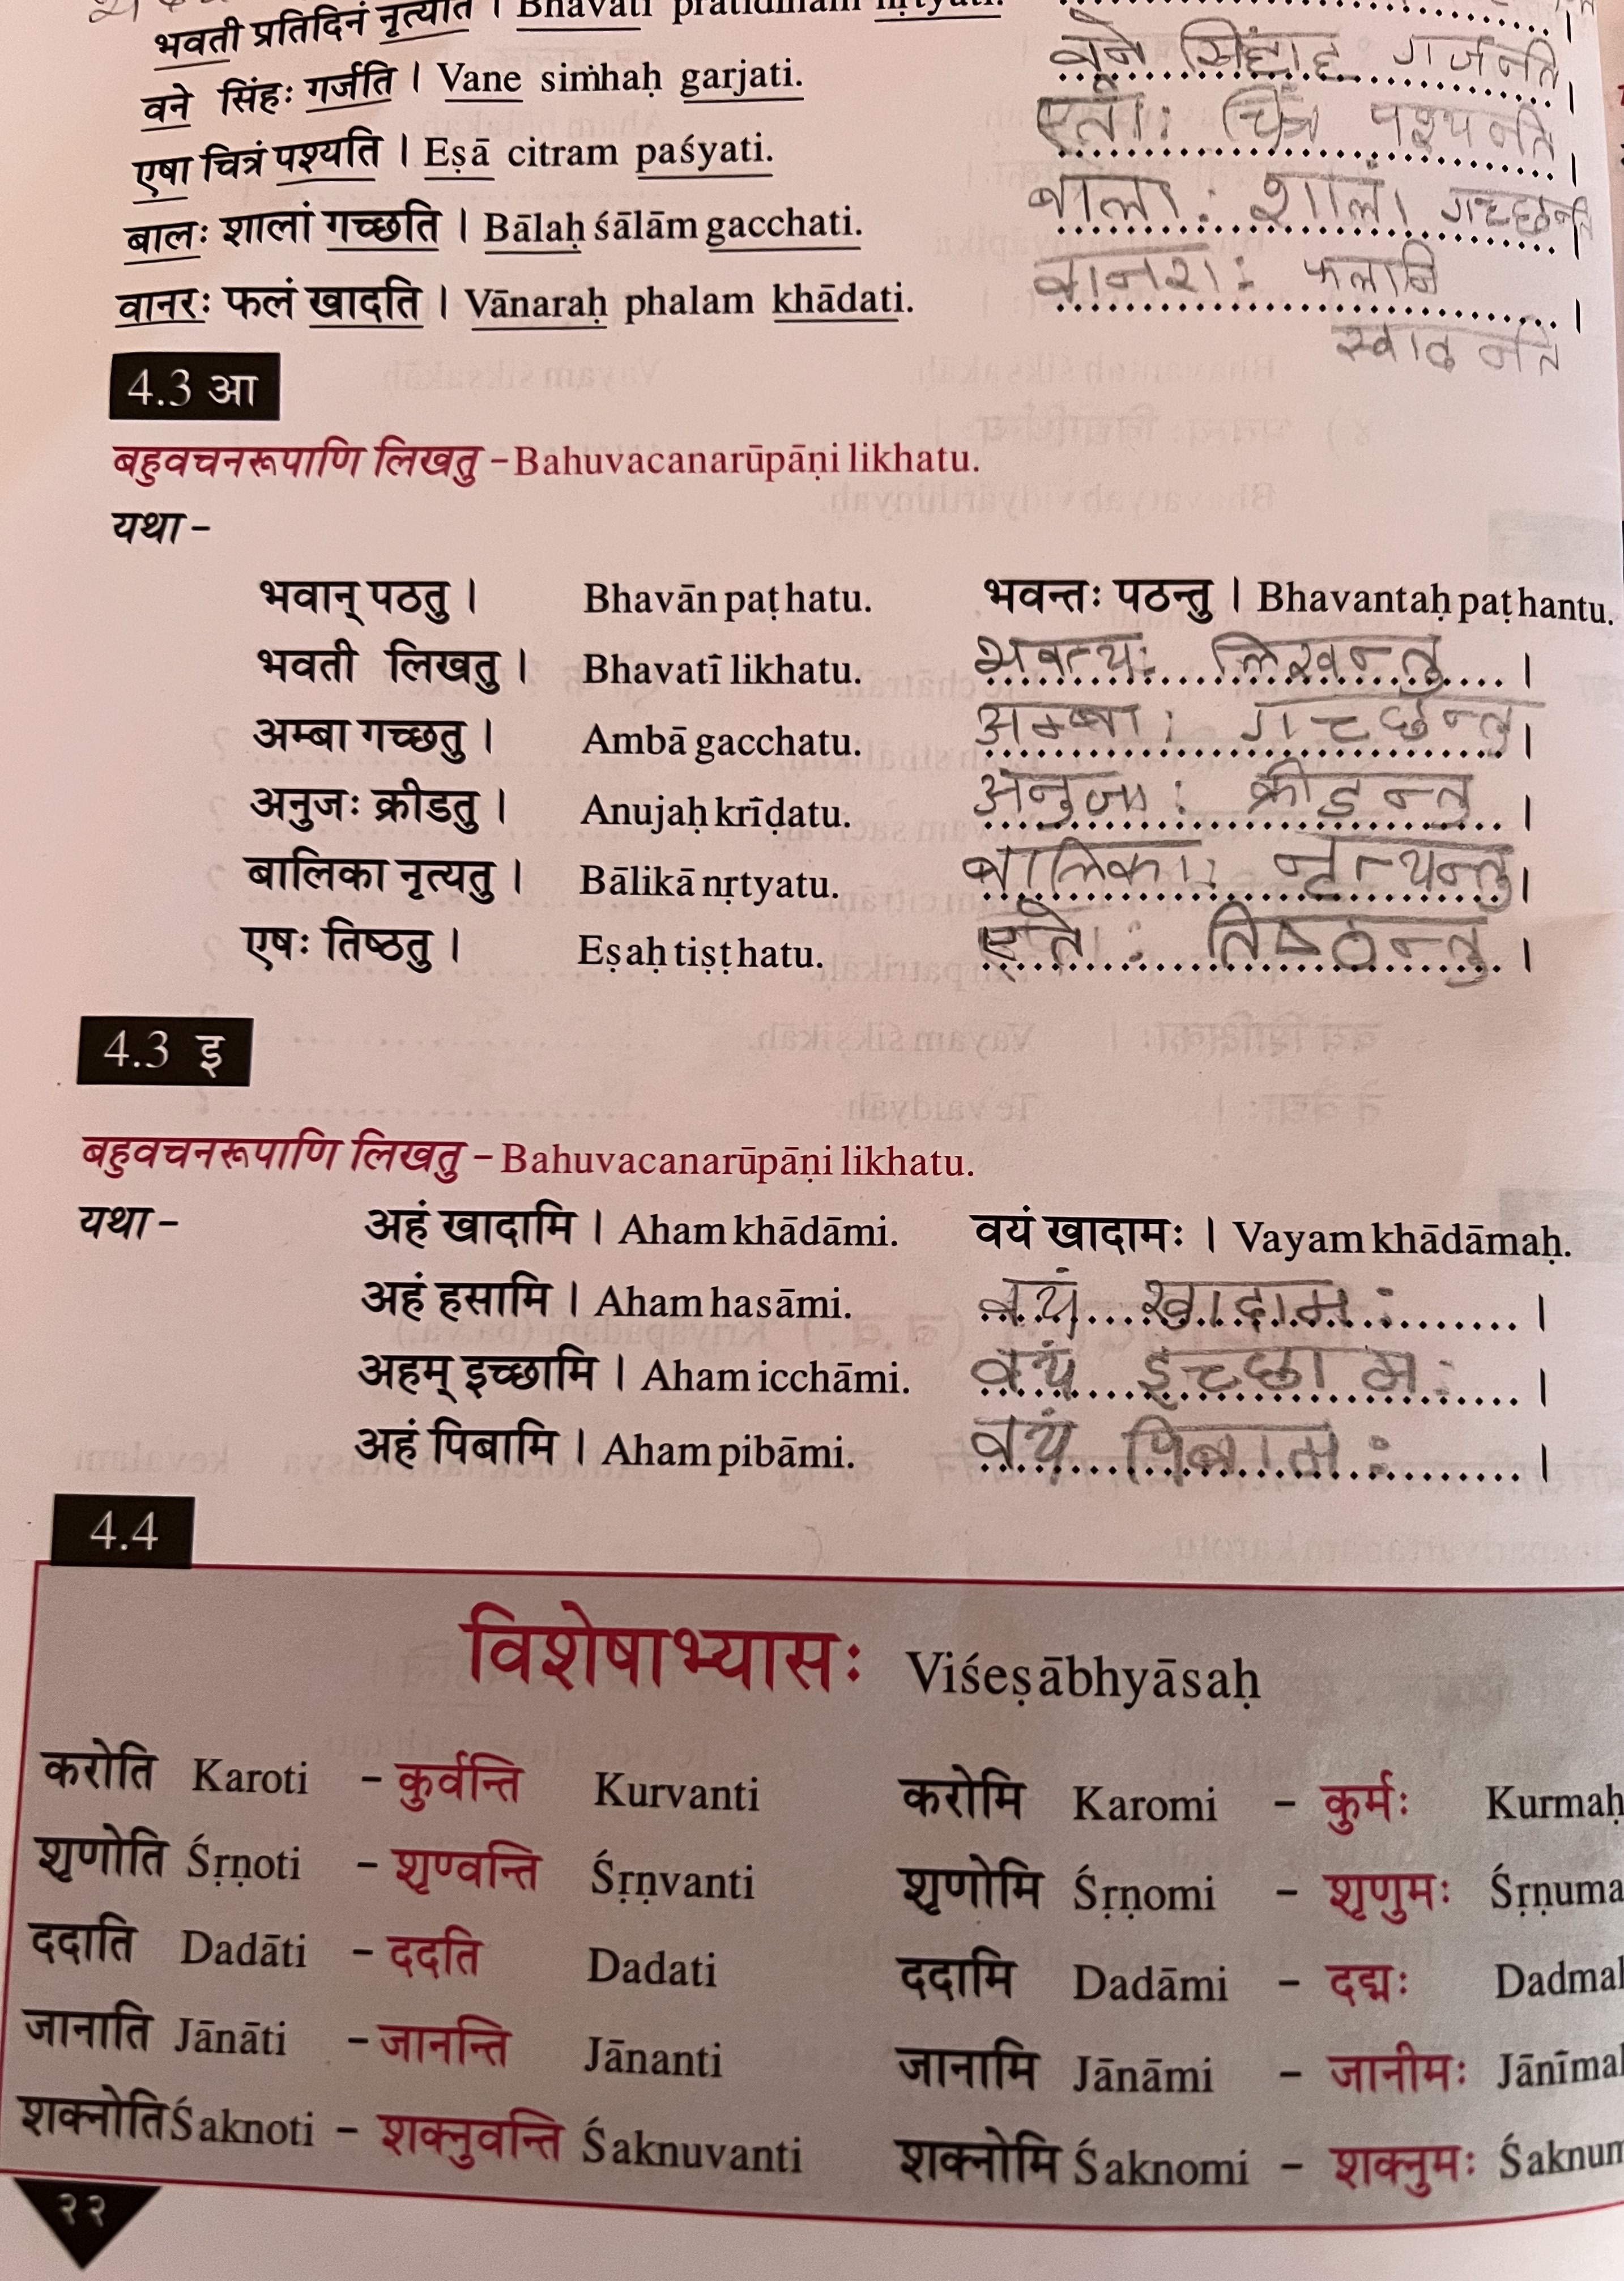 भवती प्रतिदिनं नृत्यति । Bhavatī pratidinam nṛtyati.
वने सिंहः गर्जति । Vane siṁhaḥ garjati. वने सिंहाह गर्जन्ति ।
एषा चित्रं पश्यति । Eṣā citram paśyati. एताः चित्र पश्यन्ति ।
बालः शालां गच्छति । Bālaḥ śālām gacchati. बालाः शालां गच्छन्ति ।
वानरः फलं खादति । Vānaraḥ phalam khādati. वानराः फलानि ।
खादन्ति
4.3 आ
बहुवचनरूपाणि लिखतु – Bahuvacanarūpāṇi likhatu.
यथा –
भवान् पठतु । Bhavān paṭhatu. भवन्तः पठन्तु । Bhavantaḥ paṭhantu.
भवती लिखतु । Bhavatī likhatu. भवत्यः लिखन्तु ।
अम्बा गच्छतु । Ambā gacchatu. अम्बाः गच्छन्तु ।
अनुजः क्रीडतु । Anujaḥ krīḍatu. अनुजाः क्रीडन्तु ।
बालिका नृत्यतु । Bālikā nṛtyatu. बालिकाः नृत्यन्तु ।
एषः तिष्ठतु । Eṣaḥ tiṣṭhatu. एते : तिष्ठन्तु ।
4.3 इ
बहुवचनरूपाणि लिखतु – Bahuvacanarūpāṇi likhatu.
यथा – अहं खादामि । Aham khādāmi. वयं खादामः । Vayam khādāmaḥ.
अहं हसामि । Aham hasāmi. वयं खादामः ।
अहम् इच्छामि । Aham icchāmi. वयं इच्छामः ।
अहं पिबामि । Aham pibāmi. वयं पिबामः ।
4.4
विशेषाभ्यासः Viśeṣābhyāsaḥ
करोति Karoti – कुर्वन्ति Kurvanti करोमि Karomi – कुर्मः Kurmaḥ
शृणोति Śṛṇoti – शृण्वन्ति Śṛṇvanti शृणोमि Śṛṇomi – शृणुमः Śṛṇuma
ददाति Dadāti – ददति Dadati ददामि Dadāmi – दद्मः Dadmaḥ
जानाति Jānāti – जानन्ति Jānanti जानामि Jānāmi – जानीमः Jānīmaḥ
शक्नोति Śaknoti – शक्नुवन्ति Śaknuvanti शक्नोमि Śaknomi – शक्नुमः Śaknum
२२